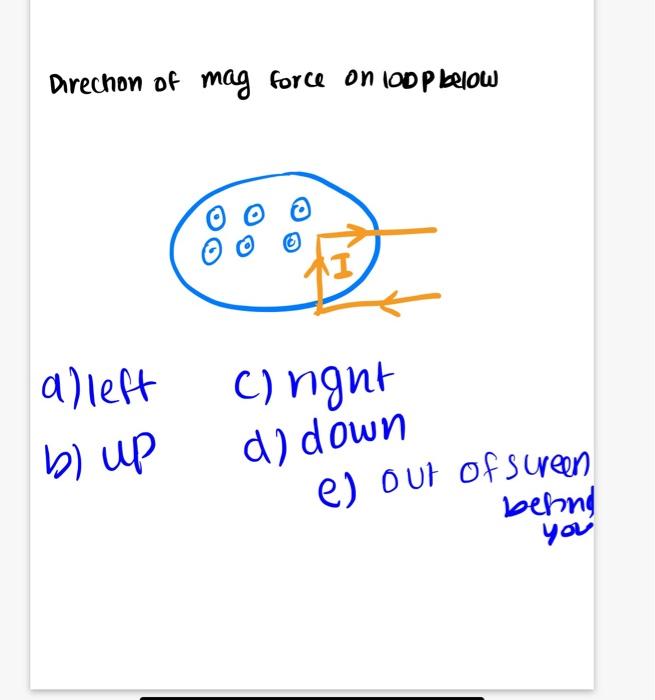 Direction of mag force on loop below
I
a) left c) right
b) up d) down
e) out of screen
behind
you